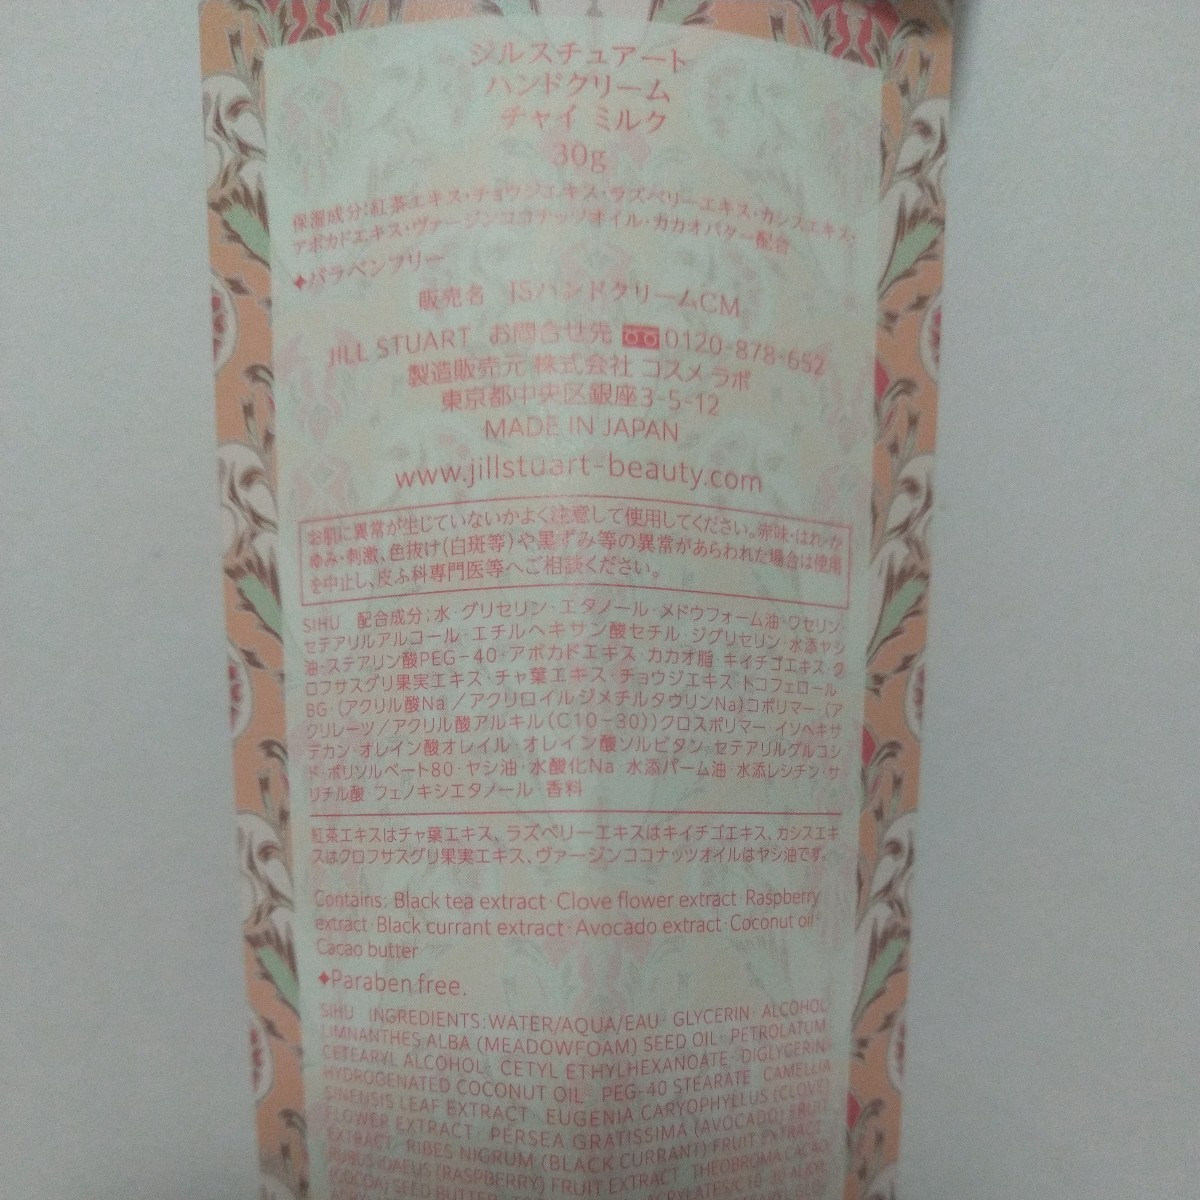 ジルスチュアート
ハンドクリーム
チャイ ミルク
30g
保湿成分:紅茶エキス・チョウジエキス・ラズベリーエキス・カシスエキス・
アボカドエキス・ヴァージンココナッツオイル・カカオバター配合
✦パラベンフリー
販売名 JSハンドクリームCM
JILL STUART お問合せ先 0120-878-652
製造販売元 株式会社 コスメ ラボ
東京都中央区銀座3-5-12
MADE IN JAPAN
www.jillstuart-beauty.com
お肌に異常が生じていないかよく注意して使用してください。赤味・はれ・か
ゆみ・刺激、色抜け(白斑等)や黒ずみ等の異常があらわれた場合は使用
を中止し、皮ふ科専門医等へご相談ください。
SIHU 配合成分;水・グリセリン・エタノール・メドウフォーム油・ワセリン・
セテアリルアルコール・エチルヘキサン酸セチル・ジグリセリン・水添ヤシ
油・ステアリン酸PEG-40・アボカドエキス・カカオ脂・キイチゴエキス・ク
ロフサスグリ果実エキス・チャ葉エキス・チョウジエキス・トコフェロール・
BG・(アクリル酸Na/アクリロイルジメチルタウリンNa)コポリマー・(ア
クリレーツ/アクリル酸アルキル(C10-30))クロスポリマー・イソヘキサ
デカン・オレイン酸オレイル・オレイン酸ソルビタン・セテアリルグルコシ
ド・ポリソルベート80・ヤシ油・水酸化Na・水添パーム油・水添レシチン・サ
リチル酸・フェノキシエタノール・香料
紅茶エキスはチャ葉エキス、ラズベリーエキスはキイチゴエキス、カシスエキ
スはクロフサスグリ果実エキス、ヴァージンココナッツオイルはヤシ油です。
Contains: Black tea extract・Clove flower extract・Raspberry
extract・Black currant extract・Avocado extract・Coconut oil・
Cacao butter
✦Paraben free.
SIHU INGREDIENTS:WATER/AQUA/EAU・GLYCERIN・ALCOHOL・
LIMNANTHES ALBA (MEADOWFOAM) SEED OIL・PETROLATUM・
CETEARYL ALCOHOL・CETYL ETHYLHEXANOATE・DIGLYCERIN・
HYDROGENATED COCONUT OIL・PEG-40 STEARATE・CAMELLIA
SINENSIS LEAF EXTRACT・EUGENIA CARYOPHYLLUS (CLOVE)
FLOWER EXTRACT・PERSEA GRATISSIMA (AVOCADO) FRUIT
EXTRACT・RIBES NIGRUM (BLACK CURRANT) FRUIT EXTRACT・
RUBUS IDAEUS (RASPBERRY) FRUIT EXTRACT・THEOBROMA CACAO
(COCOA) SEED BUTTER・ACRYLATES/C10-30 ALKYL